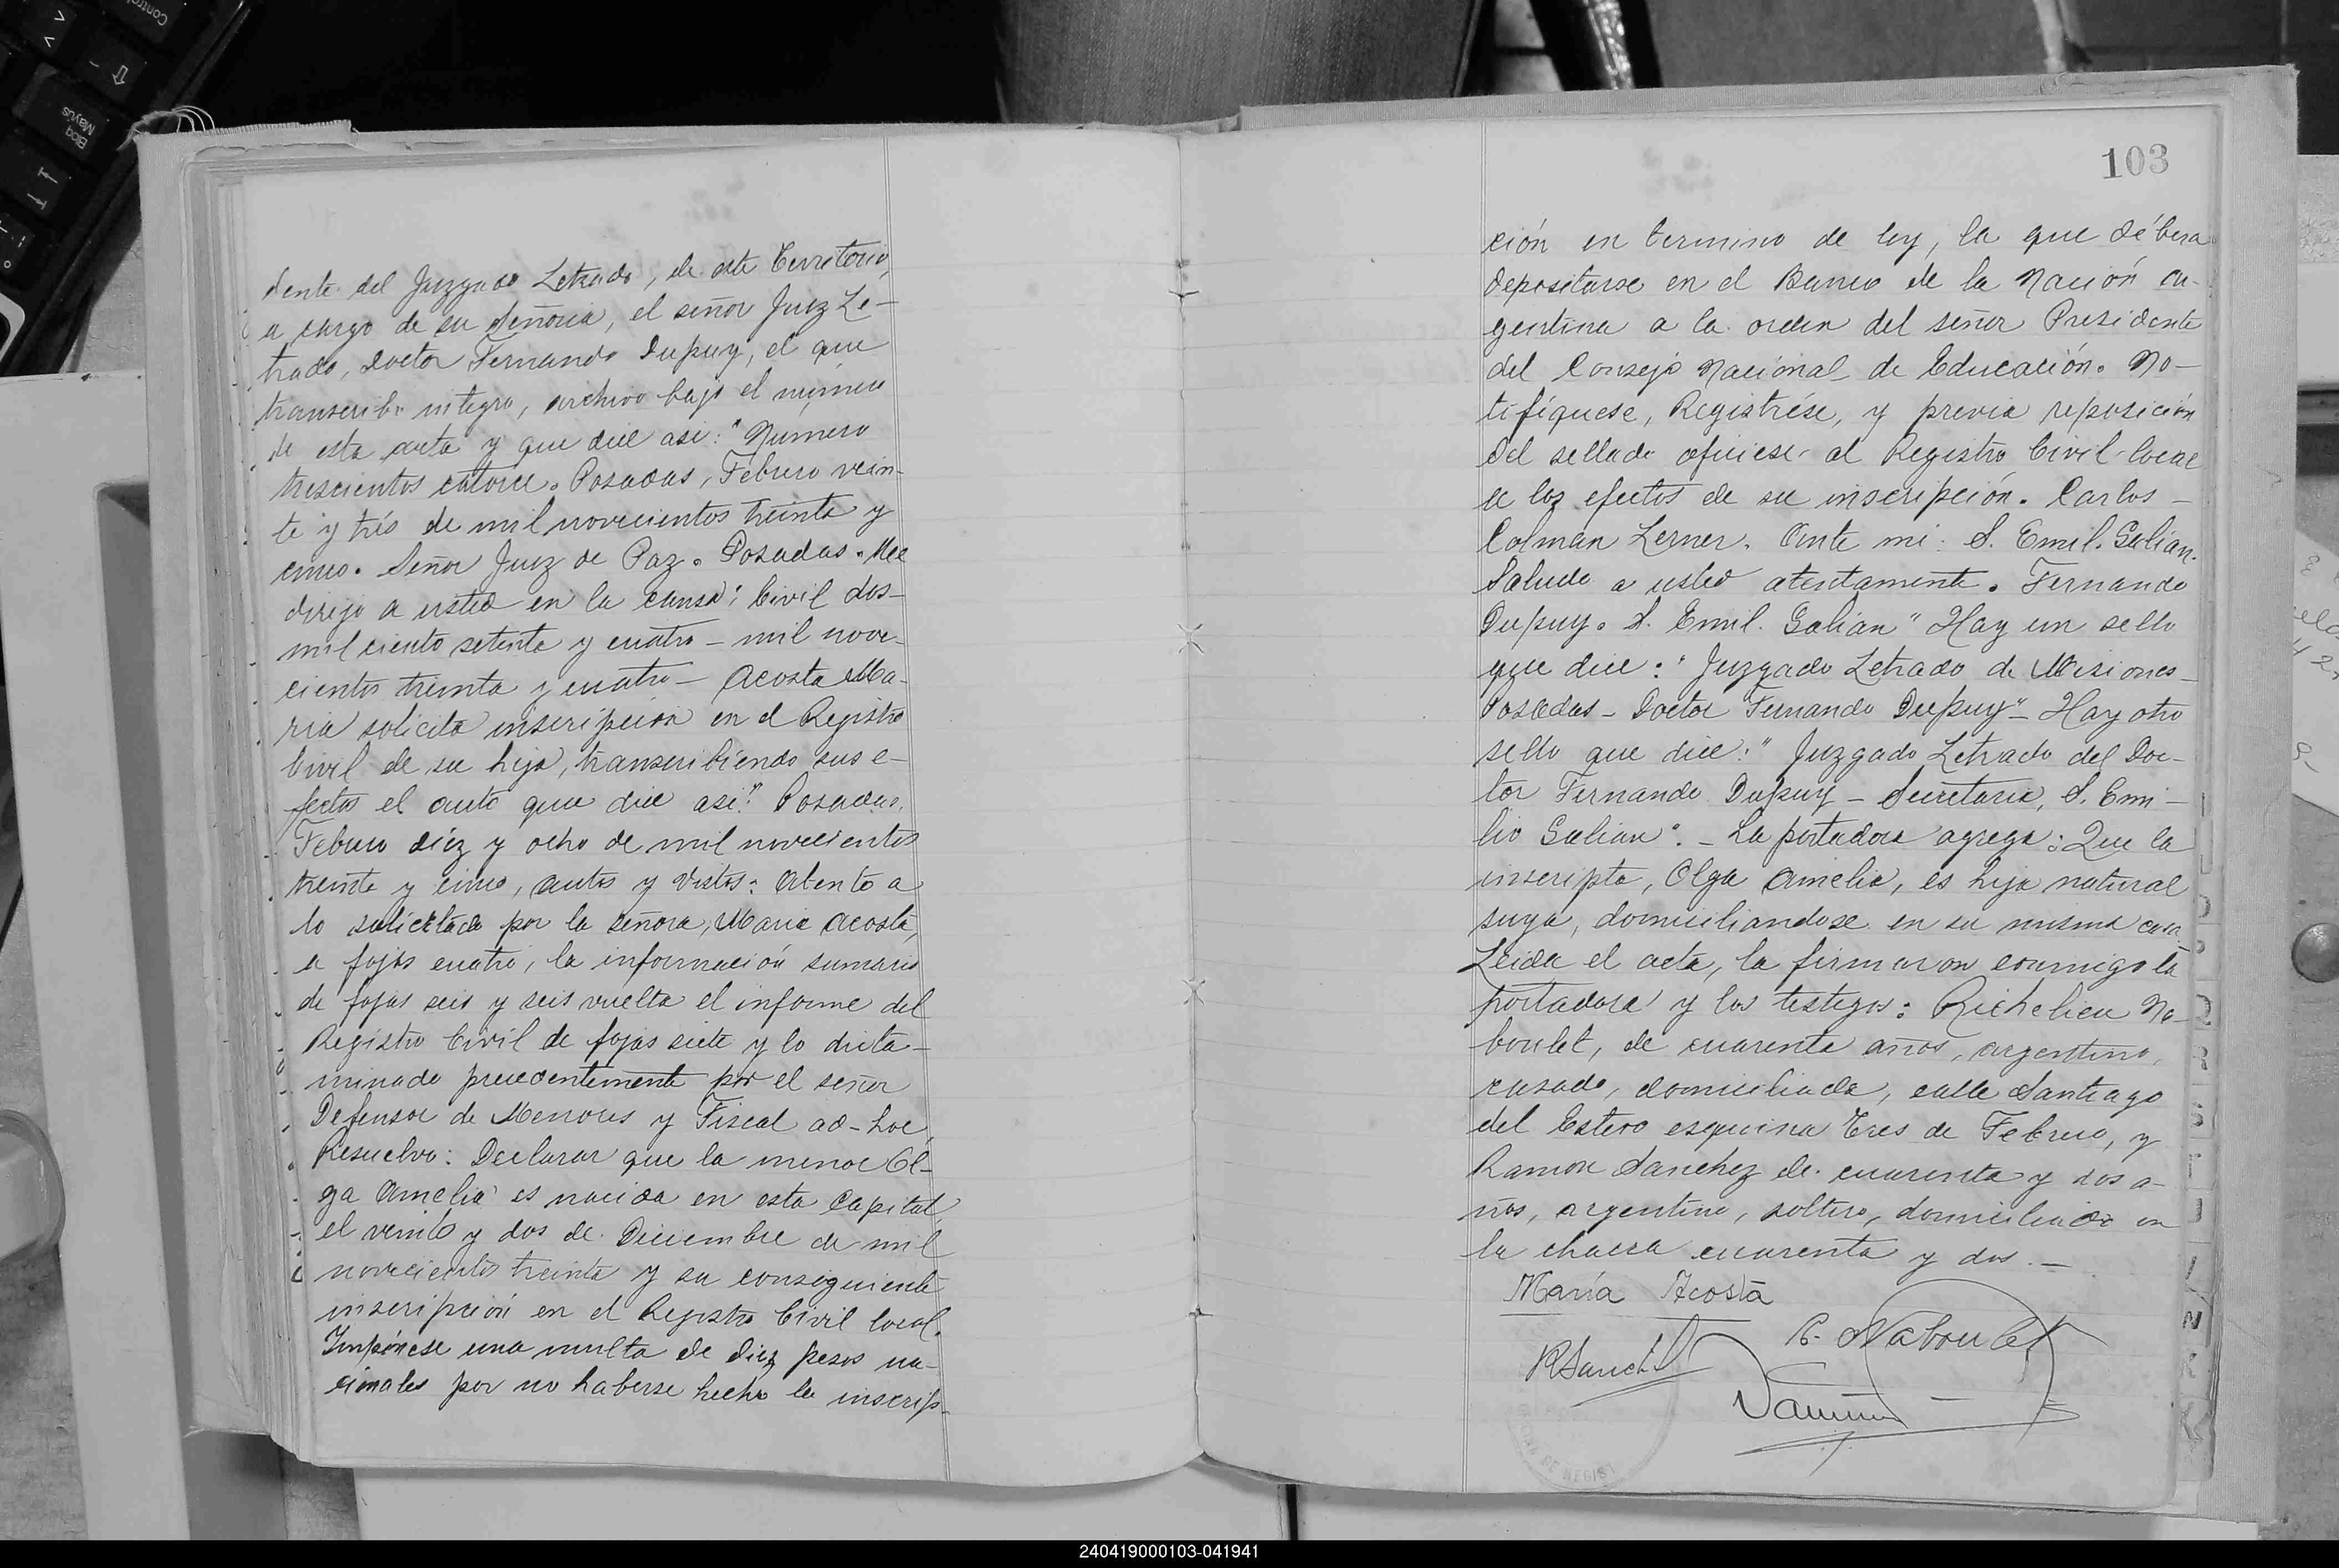 dente del Juzgado Letrado, de este Territorio,
a cargo de su Señoria, el señor Juez Le-
trado, Doctor Fernando Dupuy, el que
transcribo integro, archivo bajo el número
de esta acta y que dice asi: "Numero
trescientos catorce. Posadas, Febrero vein-
te y trés de mil novecientos treinta y
cinco. Señor Juez de Paz. Posadas. Me
dirijo a usted en la causa: Civil dos-
mil ciento setenta y cuatro - mil nove-
cientos treinta y cuatro - Acosta Ma-
ria solicita inscripcion en el Registro
Civil de su hija, transcribiendo sus e-
fectos el auto que dice asi:" Posadas,
Febrero diéz y ocho de mil novecientos
treinta y cinco, autos y Vistos: Atento a
lo solicitado por la señora, Maria Acosta,
a fojas cuatro, la información sumaria
de fojas seis y seis vuelta el informe del
Registro Civil de fojas siete y lo dicta-
minado precedentemente por el señor
Defensor de Menores y Fiscal ad-hoc,
Resuelvo: Declarar que la menor Ol-
ga Amelia es nacida en esta Capital,
el veinte y dos de Diciembre de mil
novecientos treinta y su consiguiente
inscripción en el Registro Civil local.
Impónese una multa de diez pesos na-
cionales por no haberse hecho la inscrip-
103
ción en termino de ley, la que débera
depositarse en el Banco de la Nación Ar-
gentina a la orden del señor Presidente
del Consejo Nacional de Educación. No-
tifíquese, Registrése, y previa reposición
del sellado ofíciese al Registro Civil local
a los efectos de su inscripción. Carlos -
Colman Lerner. Ante mi: S. Emil. Galian.
Saludo a usted atentamente. Fernando
Dupuy. S. Emil. Galian" Hay un sello
que dice: "Juzgado Letrado de Misiones -
Posadas - Doctor Fernando Dupuy" - Hay otro
sello que dice: "Juzgado Letrado del Doc-
tor Fernando Dupuy - Secretaria, S. Emi-
lio Galian". - La portadora agrega: Que la
inscripta, Olga Amelia, es hija natural
suya, domiciliandose en su misma casa
Leida el acta, la firmaron conmigo la
portadora y los testigos: Richelieu Na-
boulet, de cuarenta años, argentino,
casado, domiciliado, calle Santiago
del Estero esquina Tres de Febrero, y
Ramon Sanchez de cuarenta y dos a-
ños, argentino, soltero, domiciliado en
la chacra cuarenta y dos. -
María Acosta
R. Naboulet
RSanch
240419000103-041941